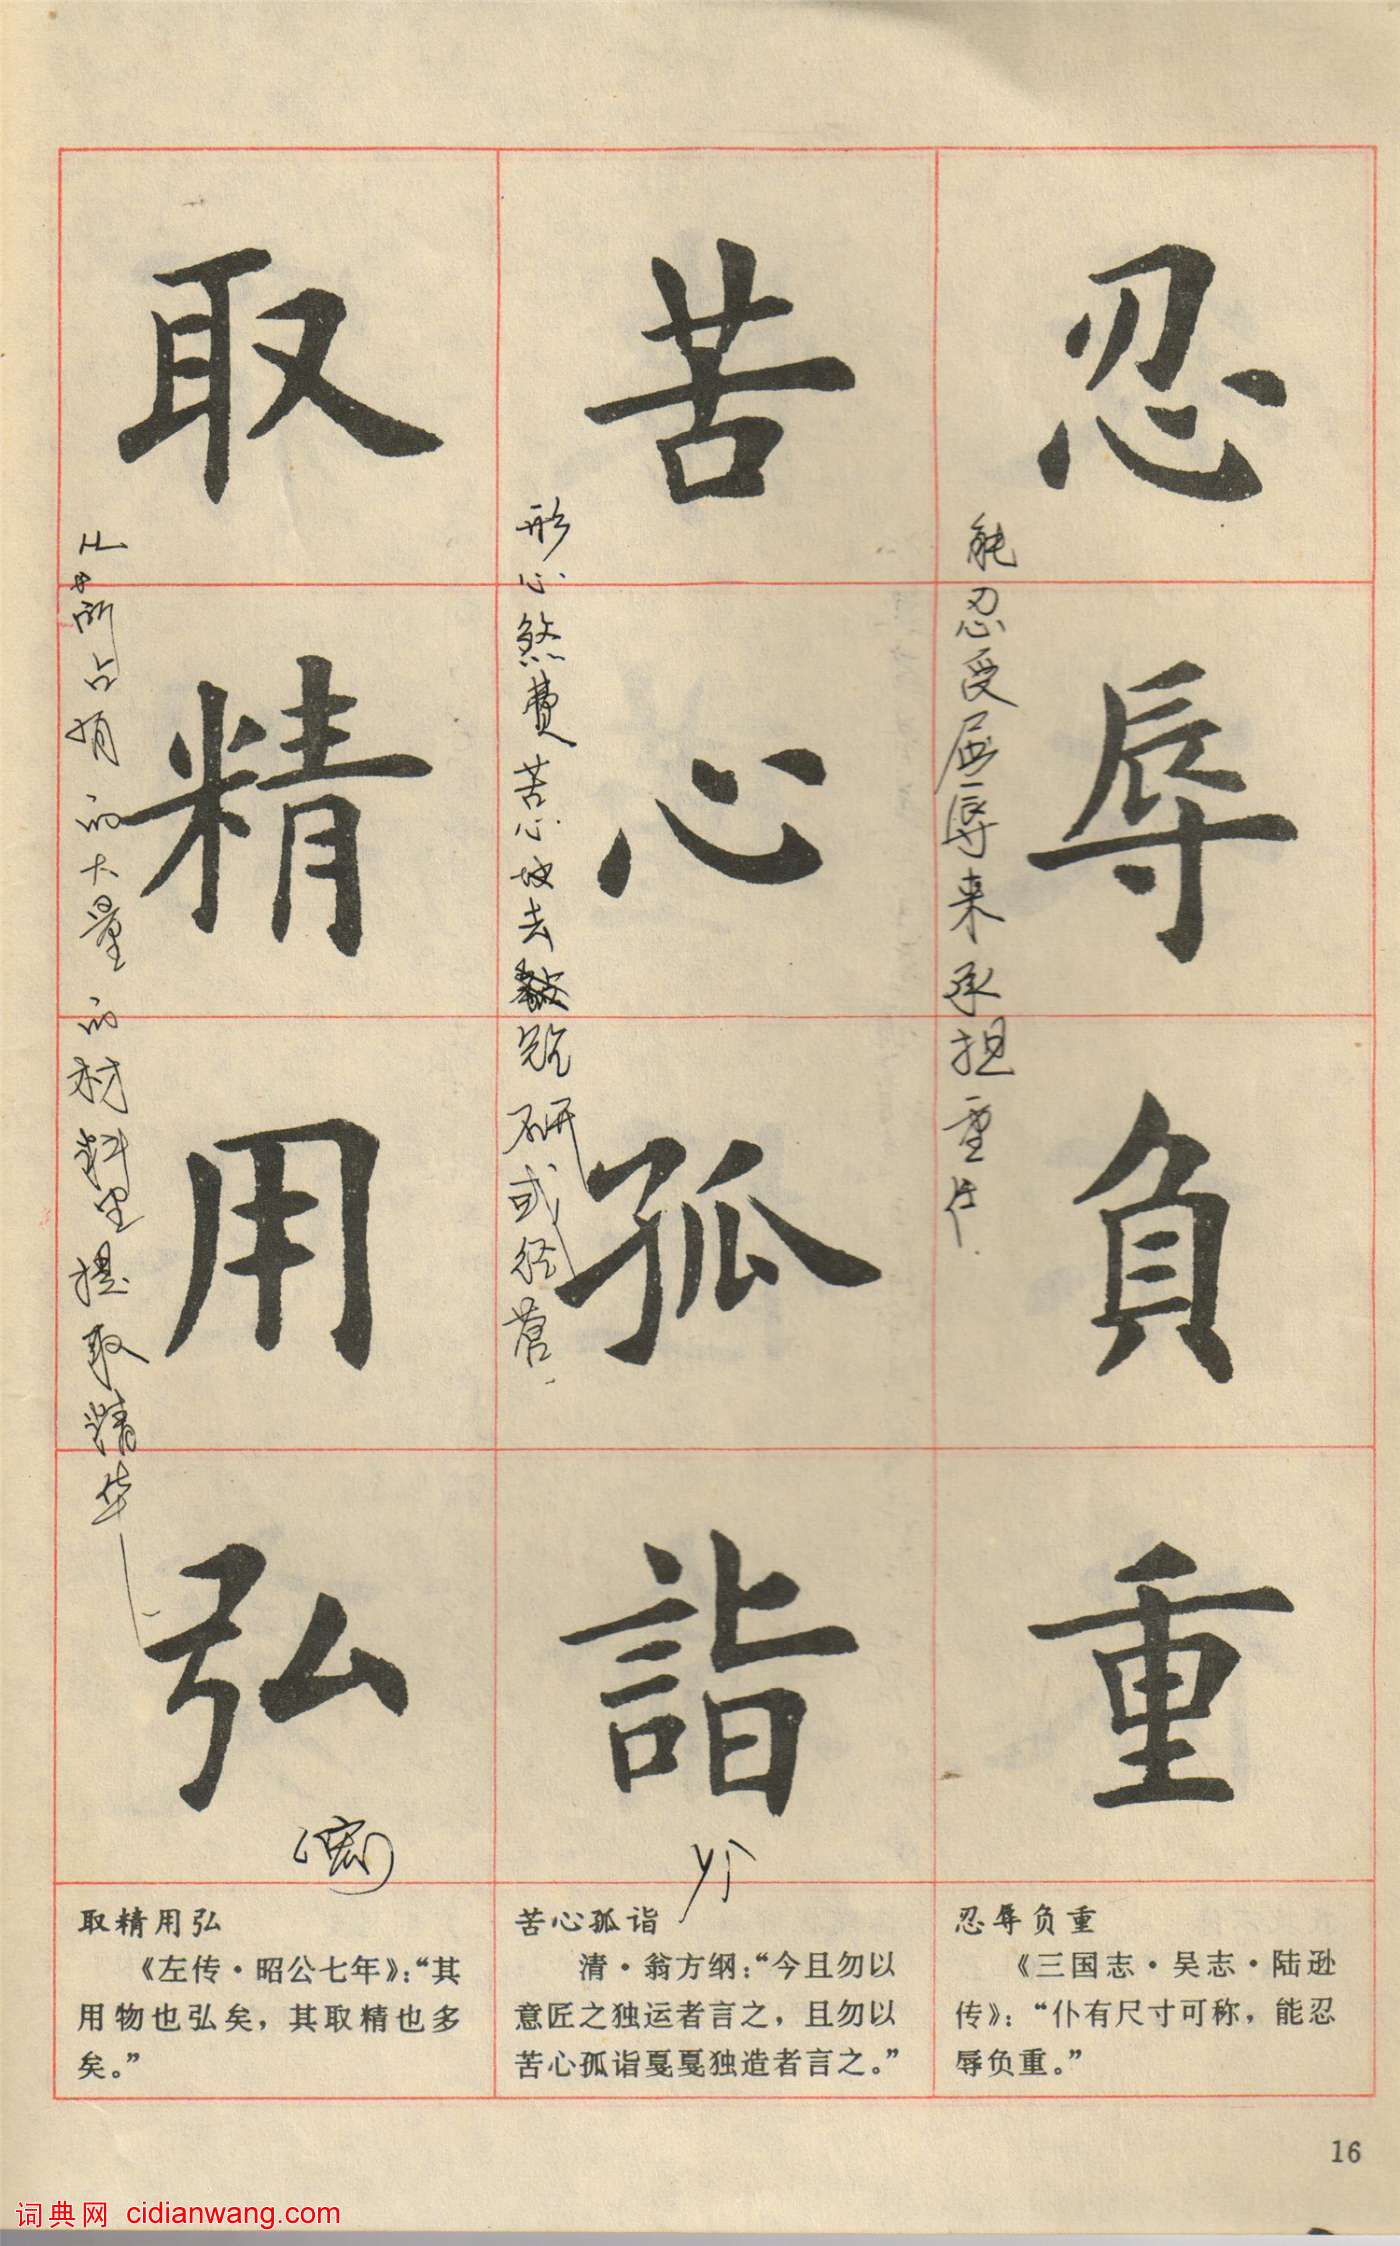 忍辱负重
苦心孤詣
取精用弘
能忍受屈辱来承担重任.
形心煞费苦心地去 研或经营.
所占有的大量的材料里提取精华
忍辱负重
《三国志·吴志·陆逊
传》：“仆有尺寸可称，能忍
辱负重。”
苦心孤诣
清·翁方纲：“今且勿以
意匠之独运者言之，且勿以
苦心孤诣戛戛独造者言之。”
取精用弘
《左传·昭公七年》：“其
用物也弘矣，其取精也多
矣。”
16
词典网 cidianwang.com